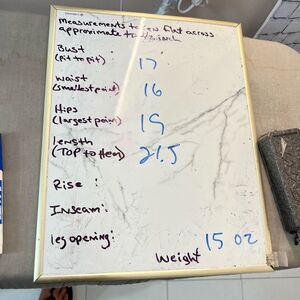 Measurements taken flat across
approximate to 1/2 inch
Bust
(pit to pit) 17
Waist
(smallest point) 16
Hips
(largest point) 19
length
(TOP to Hem) 21.5
Rise :
Inseam :
leg opening :
15 oz
Weight